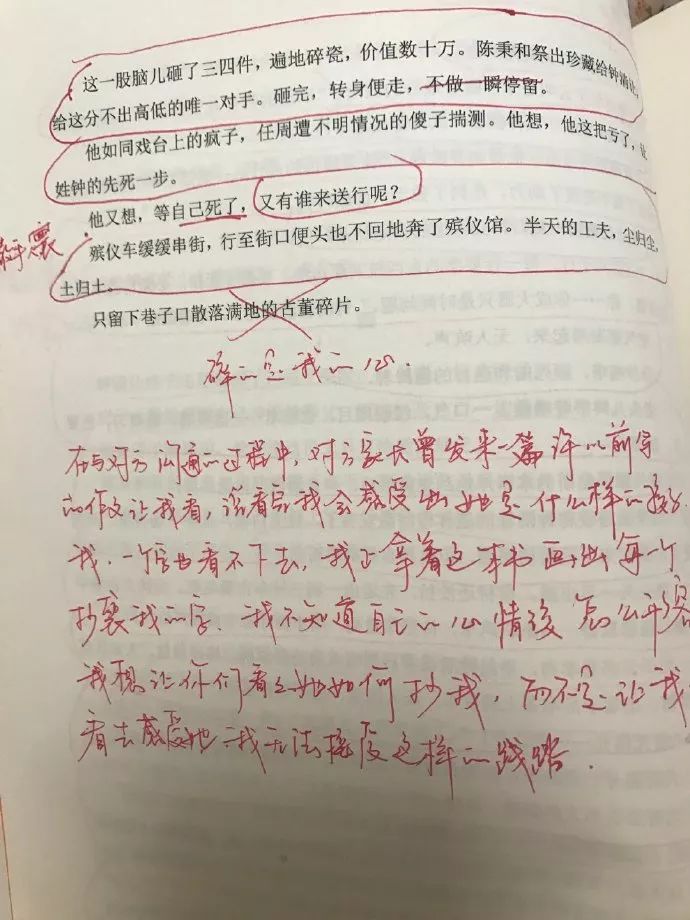 这一股脑儿砸了三四件，遍地碎瓷，价值数十万。陈秉和祭出珍藏给钟
给这分不出高低的唯一对手。砸完，转身便走，不做一瞬停留。
他如同戏台上的疯子，任周遭不明情况的傻子揣测。他想，他这把亏了，让
姓钟的先死一步。
他又想，等自己死了，又有谁来送行呢？
殡仪车缓缓串街，行至街口便头也不回地奔了殡仪馆。半天的工夫，尘归尘，
土归土。
只留下巷子口散落满地的古董碎片。
碎的是我的心.
在与对方沟通的过程中，对方家长曾发来一篇许以前写
的作文让我看，说看完我会感受出她是什么样的孩子
我，一个字也看不下去，我正拿着这本书画出每一个
抄袭我的字.我不知道自己的心情该怎么平缓
我想让你们看看她如何抄我，而不是让我
看去感受她.我无法接受这样的践踏.